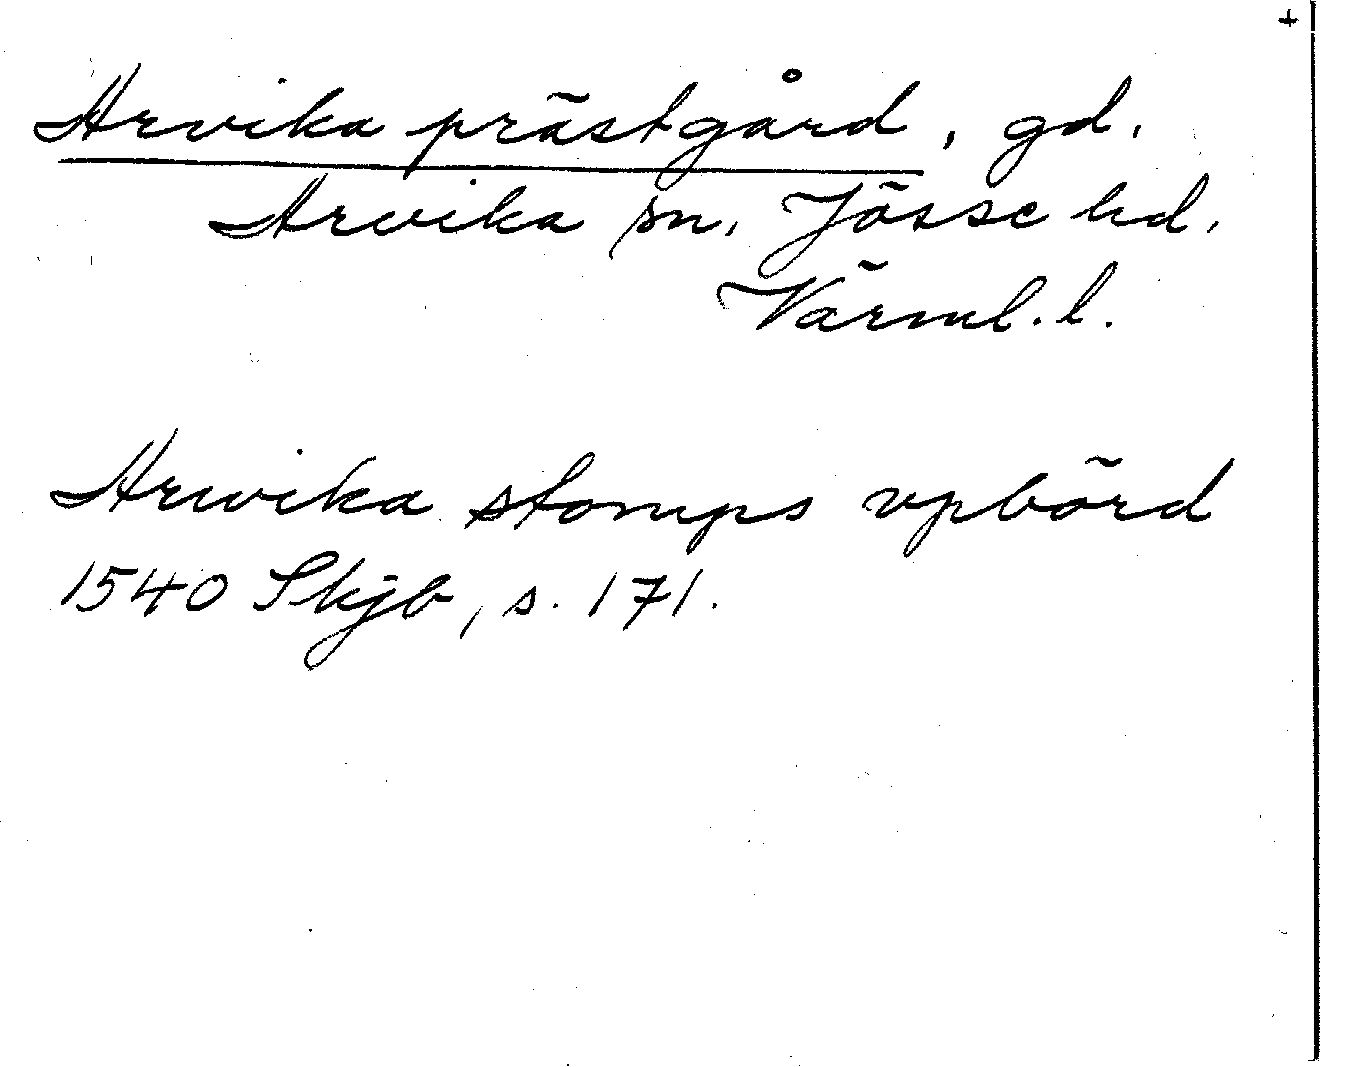 +
Arvika prästgård, gd.
Arvika sn, Jösse hd,
Värml. l.
Arwika stomps vpbörd
1540 Skjb, s. 171.